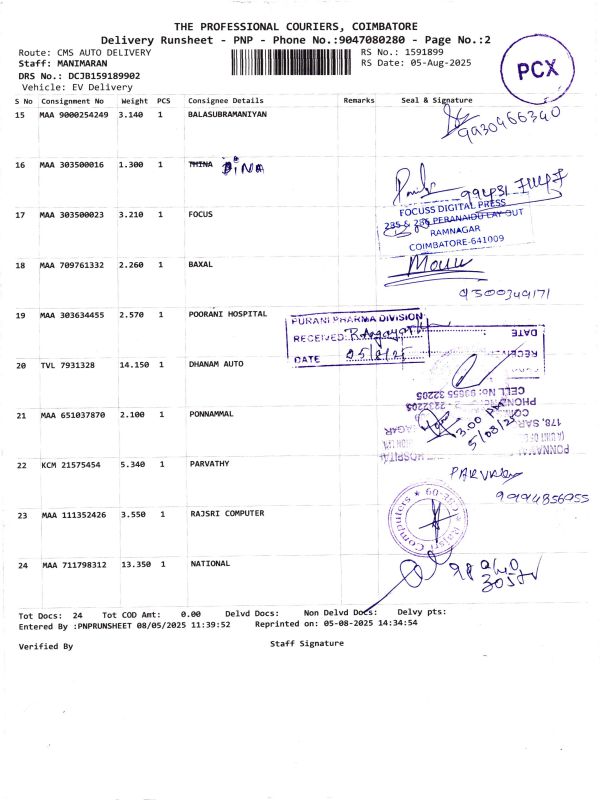 THE PROFESSIONAL COURIERS, COIMBATORE
Delivery Runsheet - PNP - Phone No.:9047080280 - Page No.:2
Route: CMS AUTO DELIVERY
RS No.: 1591899
Staff: MANIMARAN
RS Date: 05-Aug-2025
DRS No.: DCJB159189902
Vehicle: EV Delivery
PCX
S No Consignment No Weight PCS Consignee Details Remarks Seal & Signature
15 MAA 9000254249 3.140 1 BALASUBRAMANIYAN
9930466340
16 MAA 303500016 1.300 1 THINA DINA
17 MAA 303500023 3.210 1 FOCUS
FOCUSS DIGITAL PRESS
235 & 236 PERANAIDU LAY OUT
RAMNAGAR
COIMBATORE-641009
18 MAA 709761332 2.260 1 BAXAL
9300349171
19 MAA 303634455 2.570 1 POORANI HOSPITAL
PURANI PHARMA DIVISION
RECEIVED:
DATE 05/8/25
DATE
20 TVL 7931328 14.150 1 DHANAM AUTO
CELL No: 93655 32205
21 MAA 651037870 2.100 1 PONNAMMAL
3.00 PM
5/08/25
178, SAR
HOSPITAL
22 KCM 21575454 5.340 1 PARVATHY
9994856955
23 MAA 111352426 3.550 1 RAJSRI COMPUTER
Rajsri Computers
24 MAA 711798312 13.350 1 NATIONAL
Tot Docs: 24 Tot COD Amt: 0.00 Delvd Docs: Non Delvd Docs: Delvy pts:
Entered By :PNPRUNSHEET 08/05/2025 11:39:52 Reprinted on: 05-08-2025 14:34:54
Verified By
Staff Signature